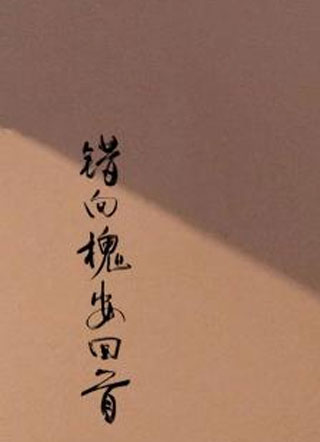 错向槐安回首